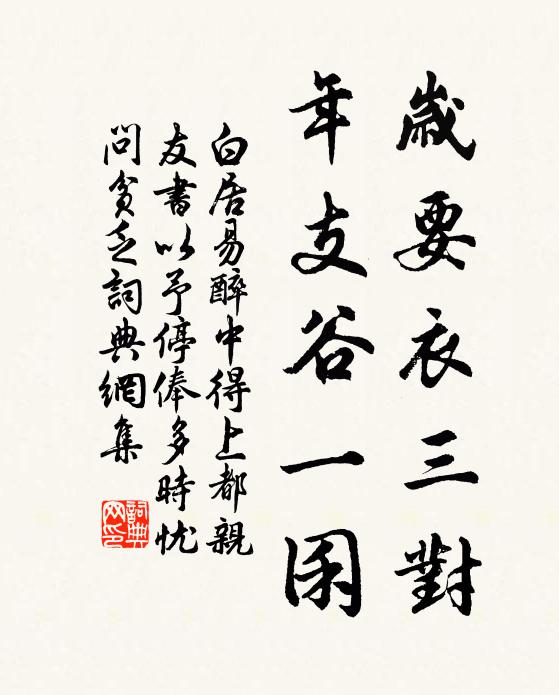 歲要衣三對
年支谷一囷
白居易醉中得上都親
友書以予停俸多時忧
問貧乏詞典網集
詞典
网印